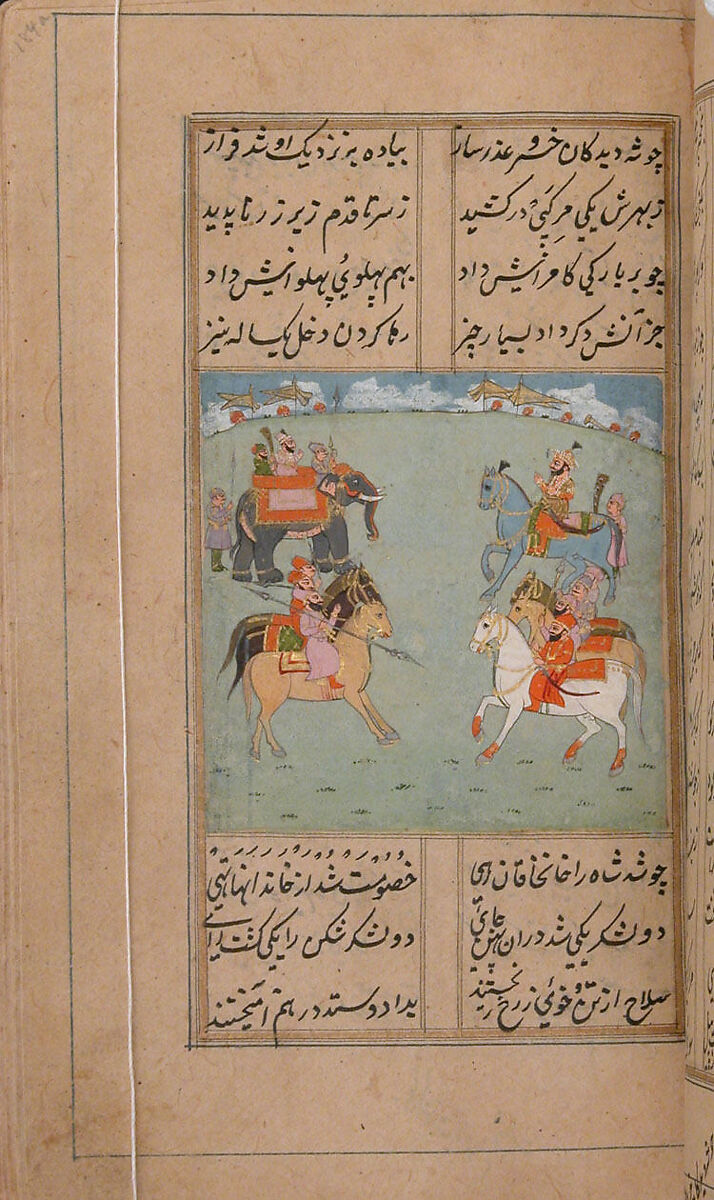 چو شه دید کان خسرو عذر ساز پیاده بنزدیک او شد فراز
ز بهرش یکی مرکبی درکشید ز سر تا قدم زیر زر ناپدید
چو بر بارکی کامرانیش داد بهم پهلوی پهلوانیش داد
جز آنش دکر داد بسیار چیز رها کردن دخل یکساله نیز
چو شد شاه را خانخاقان رهی خصومت شد از خاندانها تهی
دو لشکر یکی شد دران پهن جای دو لشکر شکن را یکی کشت رای
سلاح از تن و خوی ز رخ ریختند بداد و ستد در هم آمیختند